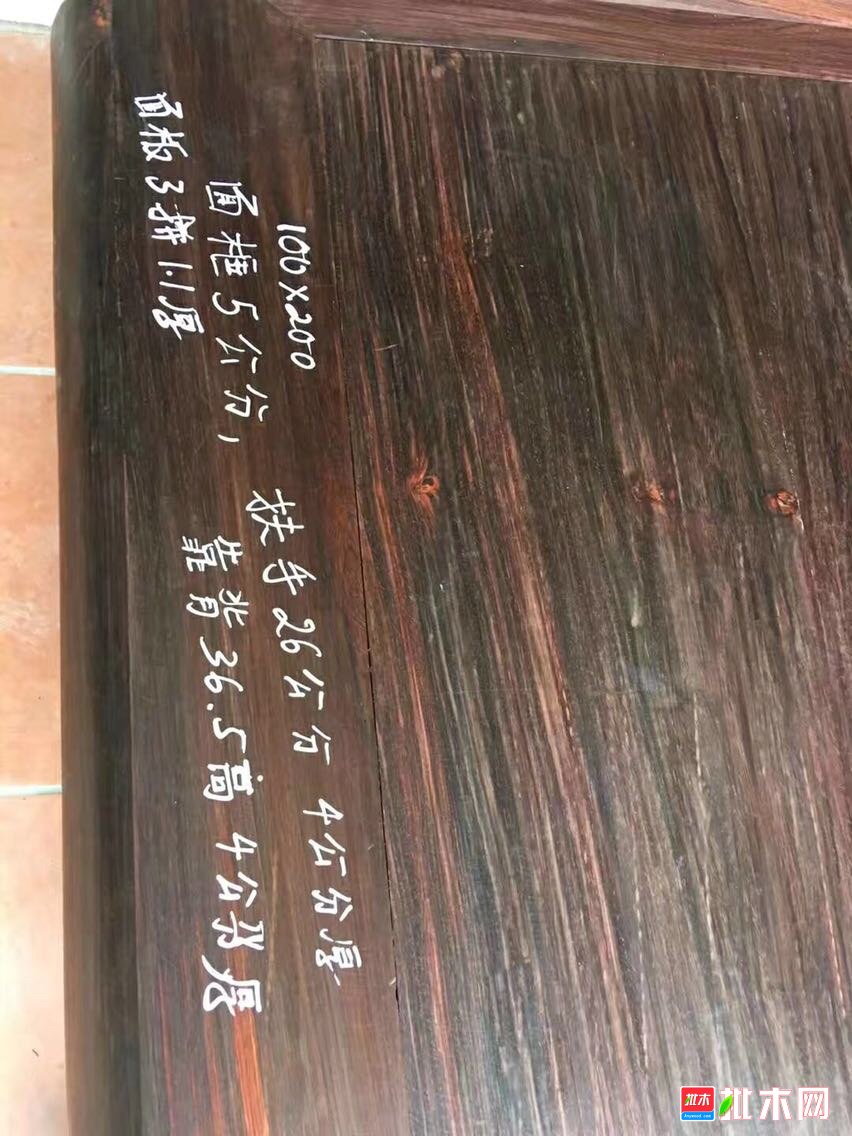 100×200
面框5公分,
面板3拼1.1厚
扶手26公分 4公分厚
靠背36.5高 4公分厚
批木
批木网